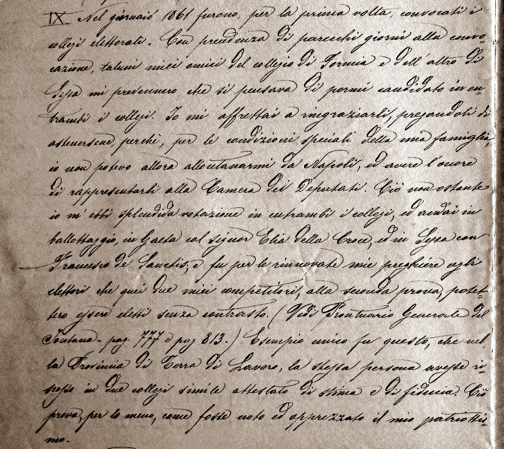 IX Nel gennaio 1861 furono, per la prima volta, convocati i
collegi elettorali. Con precedenza di parecchi giorni alla convo
cazione, taluni miei amici del collegio di Formia e dell'altro di
Sessa mi prevennero che si pensava di pormi candidato in en
trambi i collegi. Io mi affrettai a ringraziarli, pregandoli di
astenersene, perchè, per le condizioni speciali della mia famiglia,
io non potevo allora allontanarmi da Napoli, ed avere l'onore
di rappresentarli alla Camera dei Deputati. Ciò non ostante
io m'ebbi splendida votazione in entrambi i collegi, ed andai in
ballottaggio, in Gaeta col signor Elia della Croce, ed in Sessa con
Francesco de Sanctis, e fu per le rinnovate mie preghiere agli
elettori che quei due miei competitori, alla seconda prova, potet-
tero essere eletti senza contrasto. (Vedi Prontuario Generale del
Fontana. pag. 777 e pag 813.) Esempio unico fu questo, che nel
la Provincia di Terra di Lavoro, la stessa persona avesse ri
scosso in due collegi simile attestato di stima e di fiducia. Ciò
prova, per lo meno, come fosse noto ed apprezzato il mio patriotti
mo.